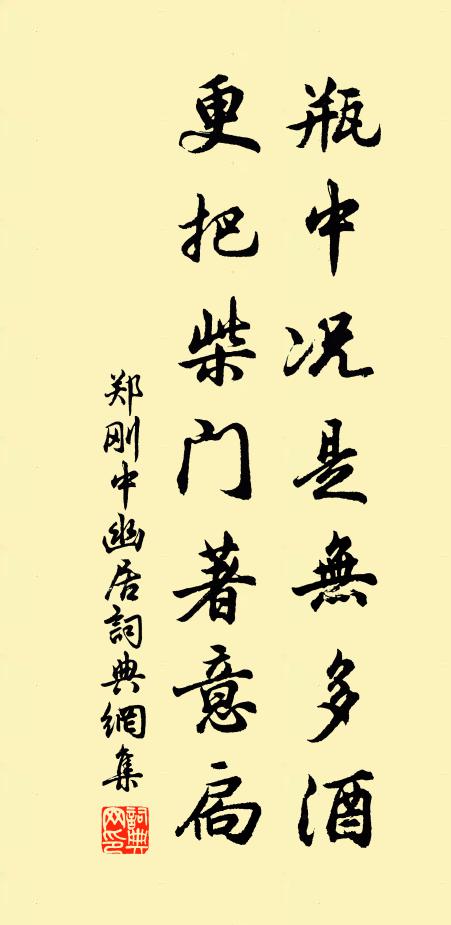 瓶中况是無多酒
更把柴门著意扃
郑刚中幽居詞典網集
詞典網印